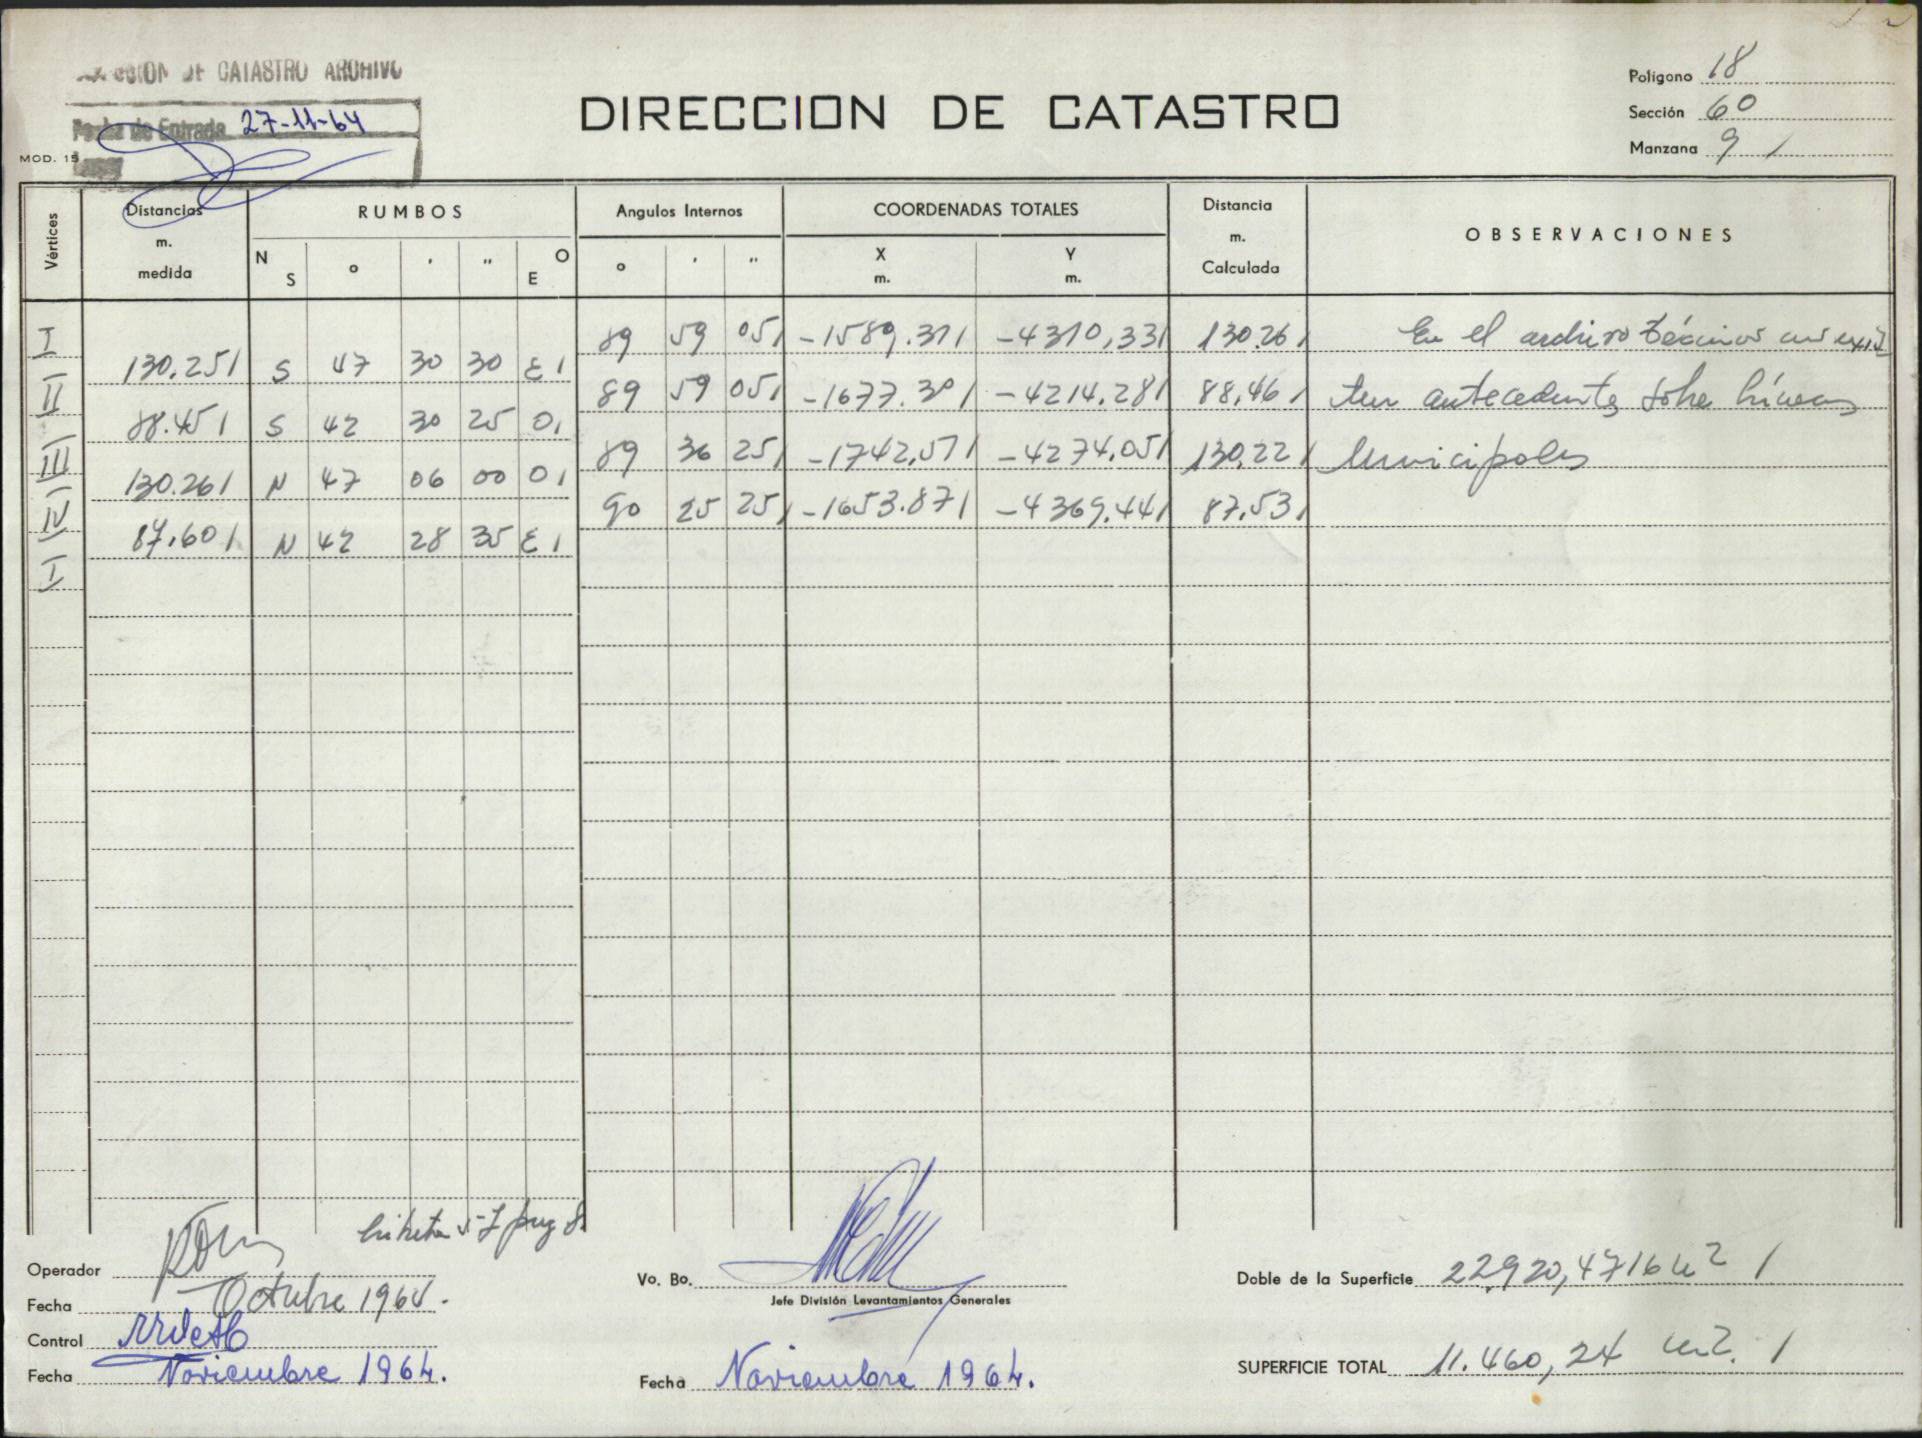 DE CATASTRO ARCHIVO
Fecha de Entrada 27-11-64
MOD. 15
DIRECCION DE CATASTRO
Polígono 18
Sección 60
Manzana 9
Vértices
Distancias m. medida
RUMBOS
N S ° ' " O E
Angulos Internos
° ' "
COORDENADAS TOTALES
X m. Y m.
Distancia m. Calculada
OBSERVACIONES
I 89 59 05 -1589.37 -4310,33 130.26 En el archivo
130.25 S 47 30 30 E
II 89 59 05 -1677.30 -4214.28 88,46 ten antecedentes sobre líneas
88.45 S 42 30 25 O
III 89 36 25 -1742,57 -4274,05 130,22 Municipales
130.26 N 47 06 00 O
IV 90 25 25 -1653.87 -4369,44 87,53
87.60 N 42 28 35 E
I
Operador
Fecha Octubre 1964.
Control
Fecha Noviembre 1964.
Vo. Bo.
Jefe División Levantamientos Generales
Fecha Noviembre 1964.
Doble de la Superficie 22.920,4716 m2
SUPERFICIE TOTAL 11.460,24 m2.